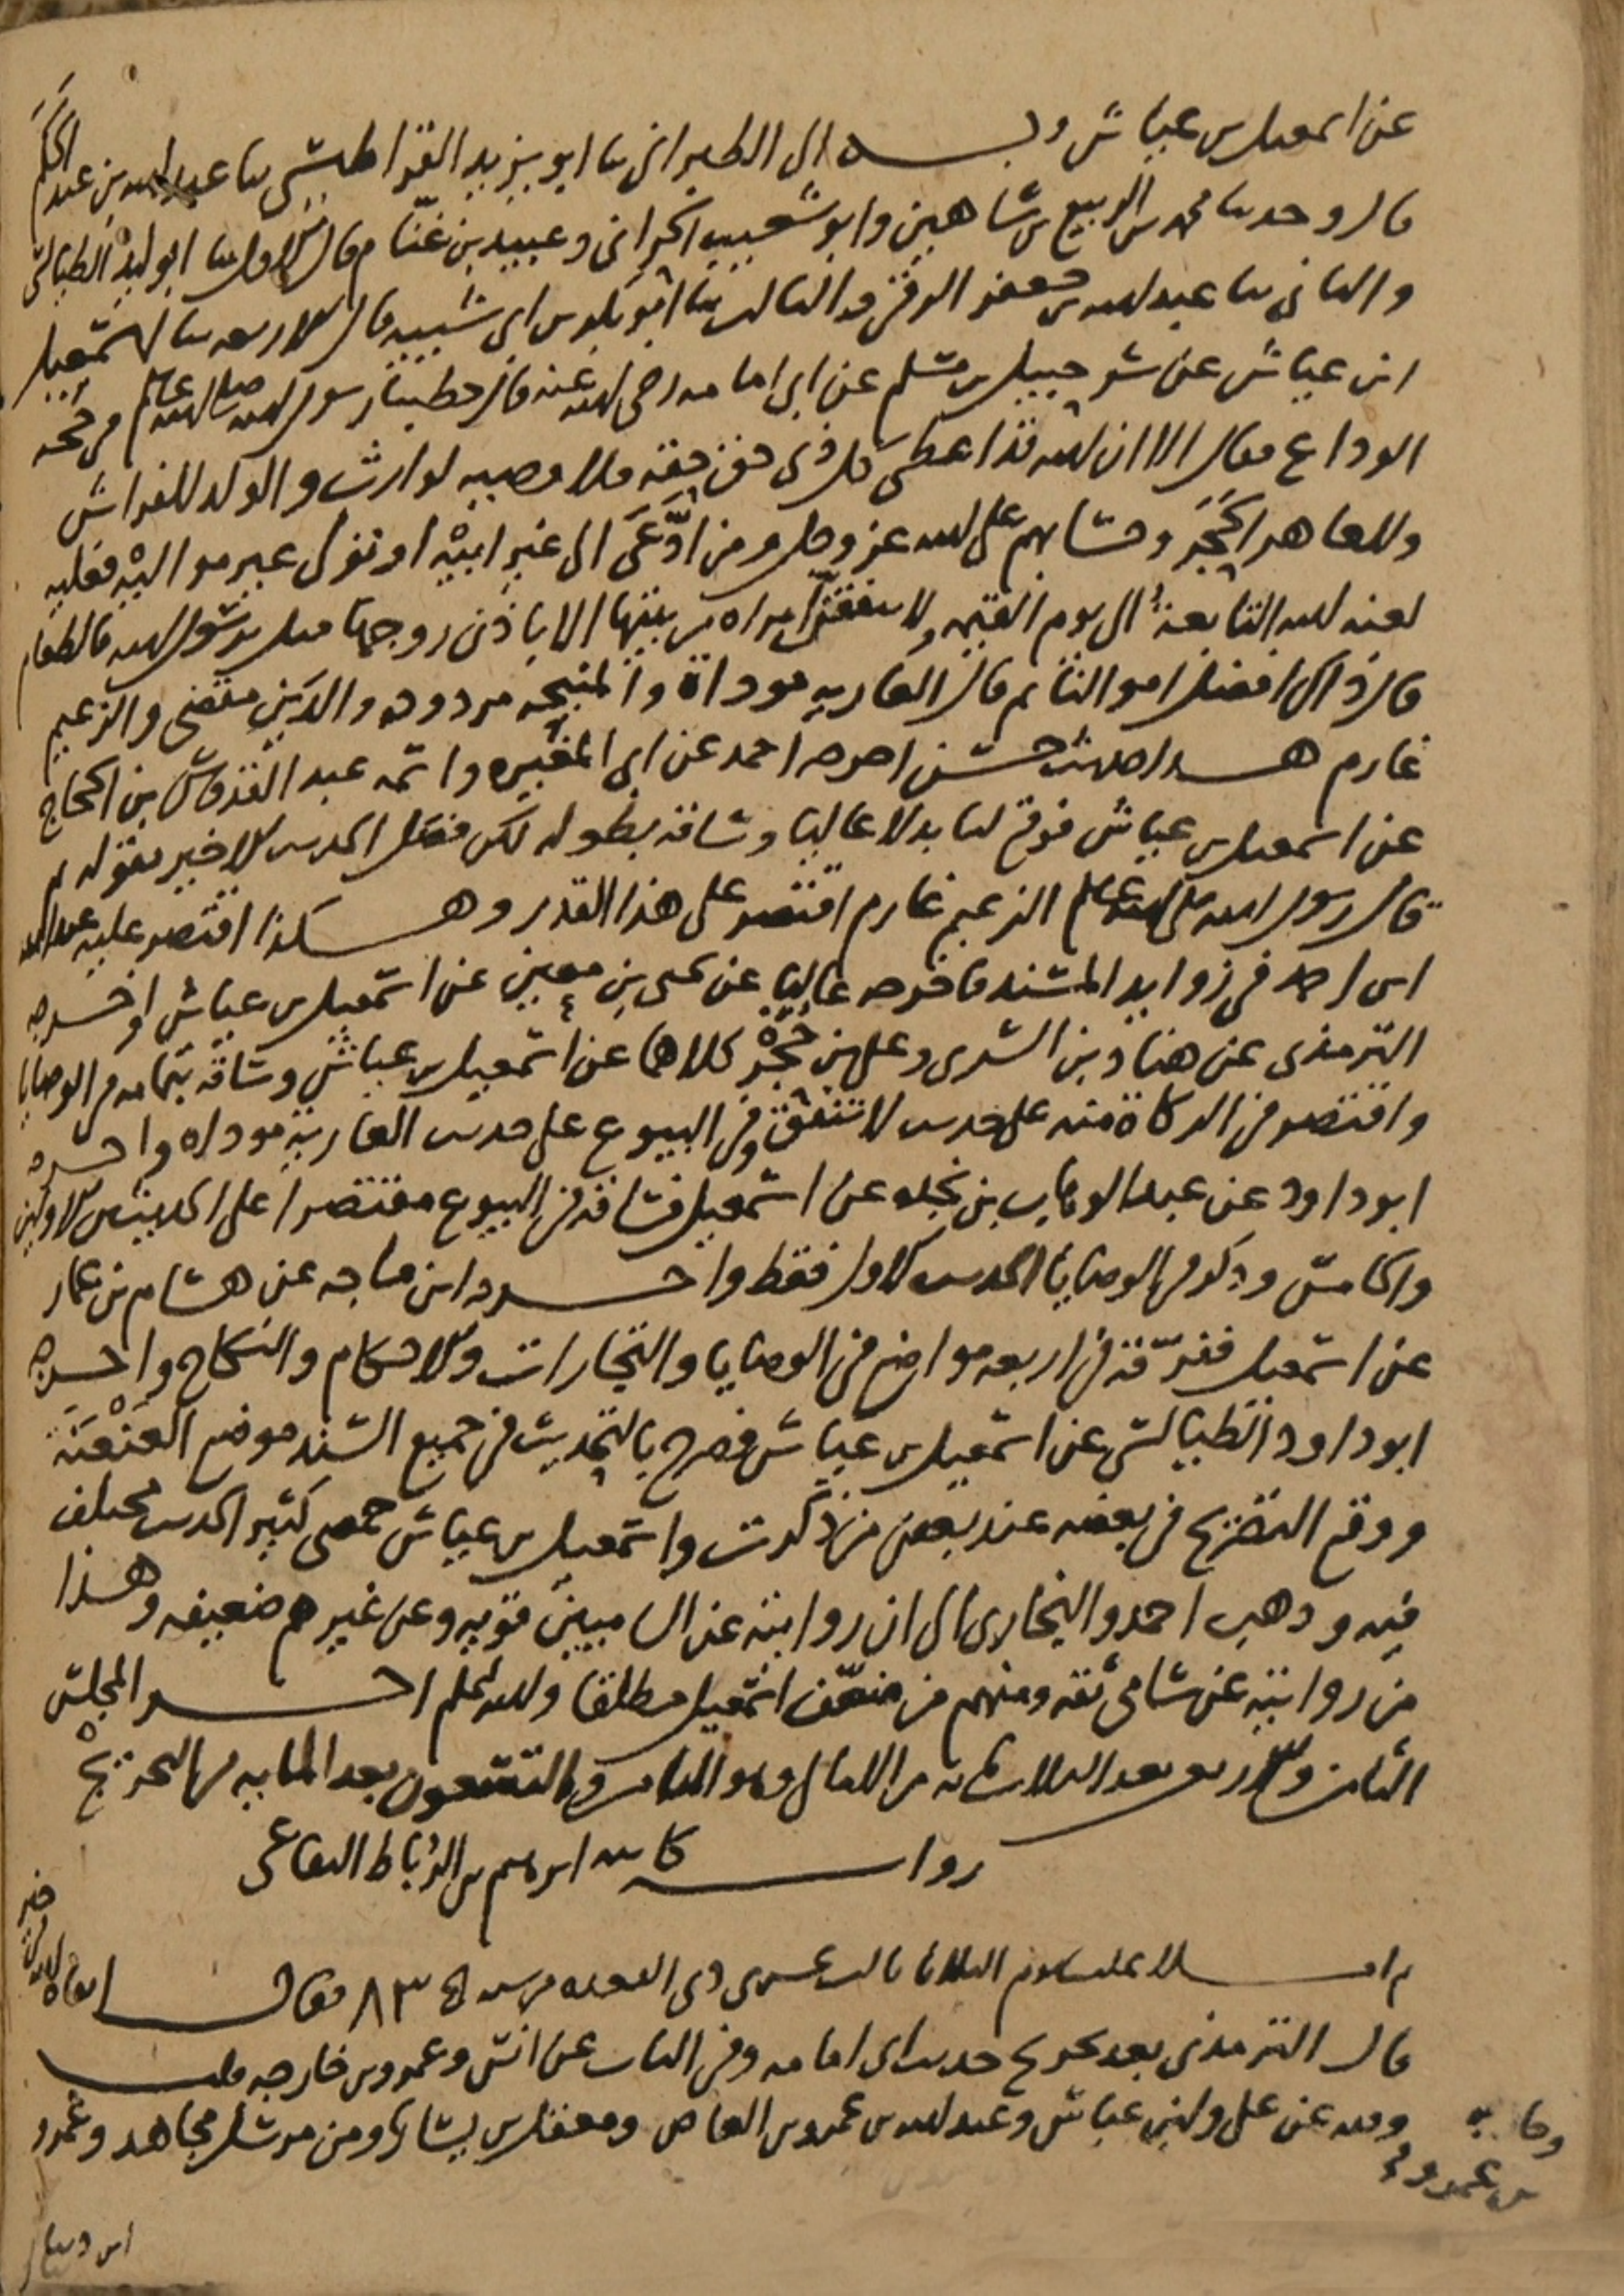 عن اسمعيل بن عياش وبه الى الطبراني ثنا ابو يزيد القراطيسي ثنا عبد الله بن عبد الحكم
قال وحدثنا محمد بن الربيع بن شاهين وابو شعيب الحراني وعبيد بن غنام قال الاول ثنا ابو الوليد الطيالسي
والثاني ثنا عبد الله بن جعفر الرقي والثالث ثنا ابو بكر بن ابي شيبه قال الاربعه ثنا اسمعيل
ابن عياش عن شرحبيل بن مسلم عن ابي امامه رضي الله عنه قال خطبنا رسول الله صلى الله عليه وسلم في حجه
الوداع فقال الا ان الله قد اعطى كل ذي حق حقه فلا وصيه لوارث والولد للفراش
وللعاهر الحَجَر وحسابهم على الله عز وجل ومن ادَّعَى الى غير ابيْه او تولى غير مواليْه فعليه
لعنه الله التابعةُ الى يوم القيمه ولا تنفقنّ امراه من بيتها الا باذن زوجها قيل يرسول الله فالطعام
قال ذاك افضل اموالنا ثم قال العاريه موداة والمنيحه مردوده والدَين مقضى والزعيم
غارم هذا حديث حسن اخرجه احمد عن ابي المغيره واسمه عبد القدوس بن الحجاج
عن اسمعيل بن عياش فوقع لنا بدلا عاليا وساقه بطوله لكن فصل الحديث الاخير بقوله ثم
قال رسول الله صلى الله عليه وسلم الزعيم غارم اقتصر على هذا القدر وهكذا اقتصر عليه عبد الله
ابن احمد في زوايد المسند فاخرجه عاليا عن يحيى بن معين عن اسمعيل بن عياش واخرجه
الترمذي عن هناد بن السرى وعلي بن حُجْر كلاهما عن اسمعيل بن عياش وساقه بتمامه في الوصايا
واقتصر في الزكاة منه على حديث لا تنفق وفي البيوع على حديث العارية موداه واخرجه
ابو داود عن عبد الوهاب بن نجده عن اسمعيل فساقه في البيوع مقتصرا على الحديثين الاولين
والخامس وذكر في الوصايا الحديث الاول فقط واخرجه ابن ماجه عن هشام بن عمار
عن اسمعيل ففرّقه في اربعه مواضع في الوصايا والتجارات والاحكام والنكاح واخرجه
ابو داود الطيالسي عن اسمعيل بن عياش فصرح بالتحديث في جميع السند موضع العَنْعَنَة
ووقع التصريح في بعضه عند بعض من ذكرت واسمعيل بن عياش حمصي كثير الحديث مختلف
فيه وذهب احمد والبخاري الى ان روايته عن الشاميين قويه وعن غيرهم ضعيفه وهذا
من روايته عن شامي ثقه ومنهم من ضعّف اسمعيل مطلقا والله اعلم اخر المجلس
الثامن والاربعين بعد الثلاثمائه من الامالي وهو الثامن والتسعون بعد المايه من التخريج
رواية كاتبه ابرهيم بن الرُباط البقاعي
ثم املا علينا يوم الثلاثا ثالث عشري ذي القعده من سنة ٨٣ فقال
ابقاه الله في خير
قال الترمذي بعد تخريج حديث ابي امامه وفي الباب عن انس وعمرو بن خارجه قلت
وفيه عن علي وابن عباس وعبد الله بن عمرو بن العاص ومعقل بن يسار ومن مرسل مجاهد وعمرو
ابن دينار